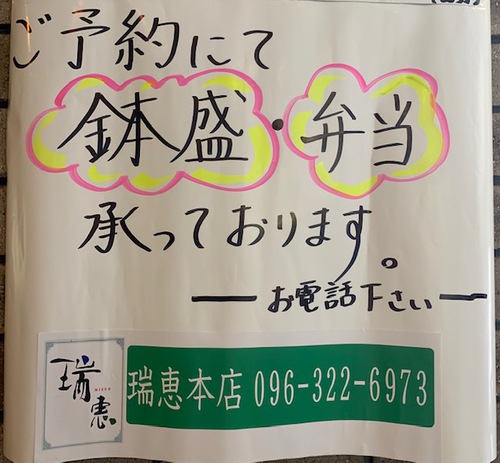 ご予約にて
鉢盛・弁当
承っております。
お電話下さい
瑞恵
瑞恵本店 096-322-6973